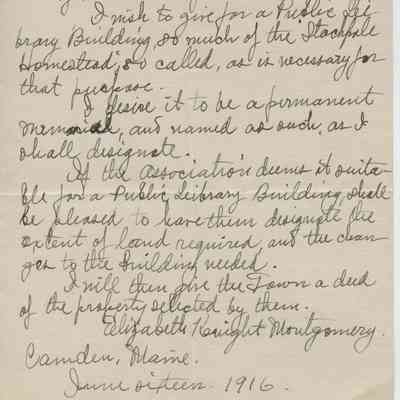 I wish to give for a Public Li-
brary Building, so much of the Stockpole
Homestead, so called, as is necessary for
that purpose.
I desire it to be a permanent
memorial, and named as such, as I
shall designate.
If the Association deems it suita-
ble for a Public Library Building, shall
be pleased to have them designate the
extent of land required, and the chan-
ges to the building needed.
I will then give the Town a deed
of the property selected by them.
Elizabeth Knight Montgomery.
Camden, Maine.
June sixteen. 1916.